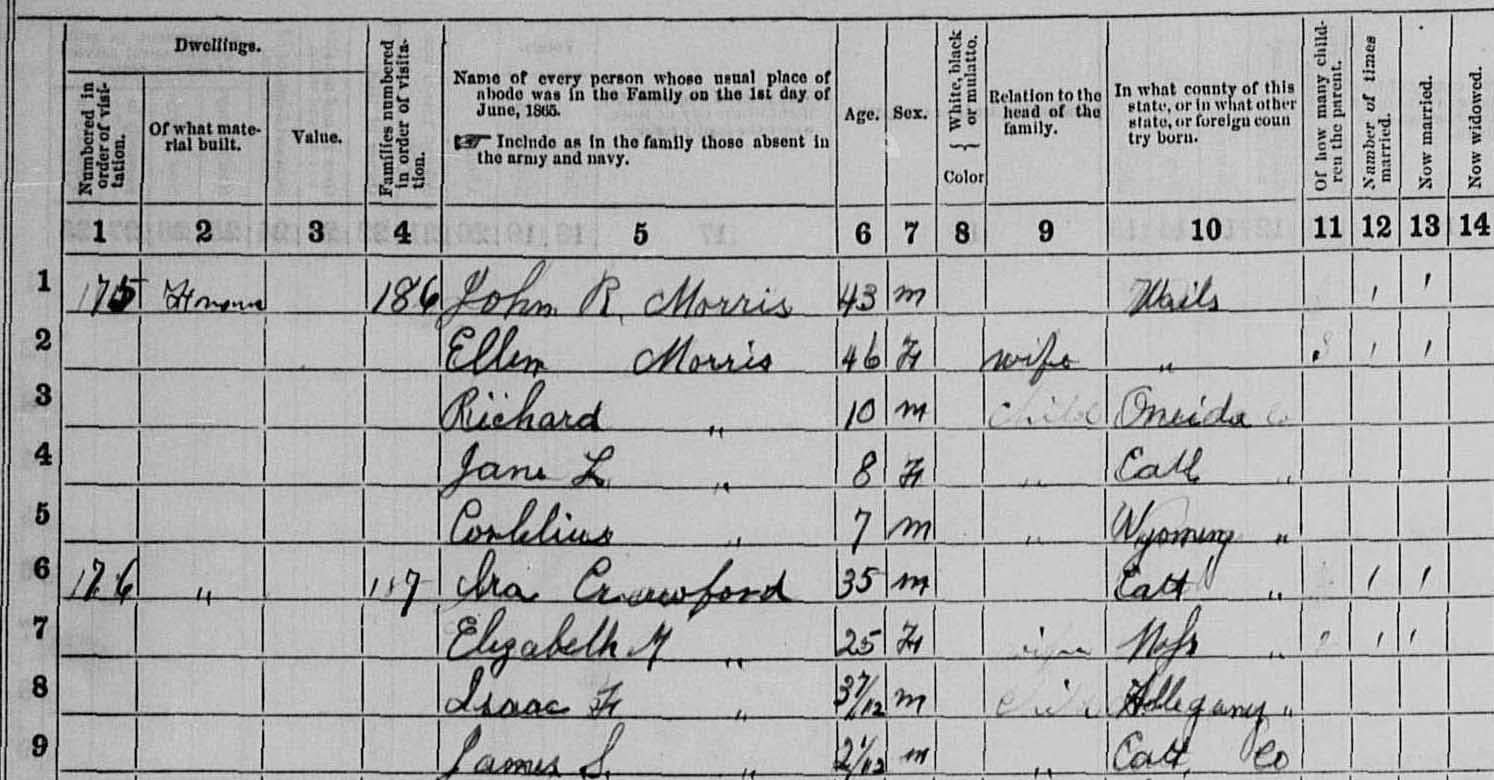 Dwellings.
Numbered in order of visitation.
Of what material built.
Value.
Families numbered in order of visitation.
Name of every person whose usual place of abode was in the Family on the 1st day of June, 1865.
☞ Include as in the family those absent in the army and navy.
Age.
Sex.
White, black or mulatto. } Color
Relation to the head of the family.
In what county of this state, or in what other state, or foreign coun try born.
Of how many children the parent.
Number of times married.
Now married.
Now widowed.
1 2 3 4 5 6 7 8 9 10 11 12 13 14
1 175 186 John R. Morris 43 m Wails ′ ′
2 Ellen Morris 46 F wife " ′ ′
3 Richard " 10 m child Oneida Co
4 Jane L. " 8 F " Catt "
5 " 7 m " Wyoming "
6 176 " Ira Crawford 35 m Catt " ′ ′
7 Elizabeth M " 25 F wife " ′ ′ ′
8 Isaac F " 3 7/12 m child Allegany "
9 James S. " 2 1/12 m " Catt. Co